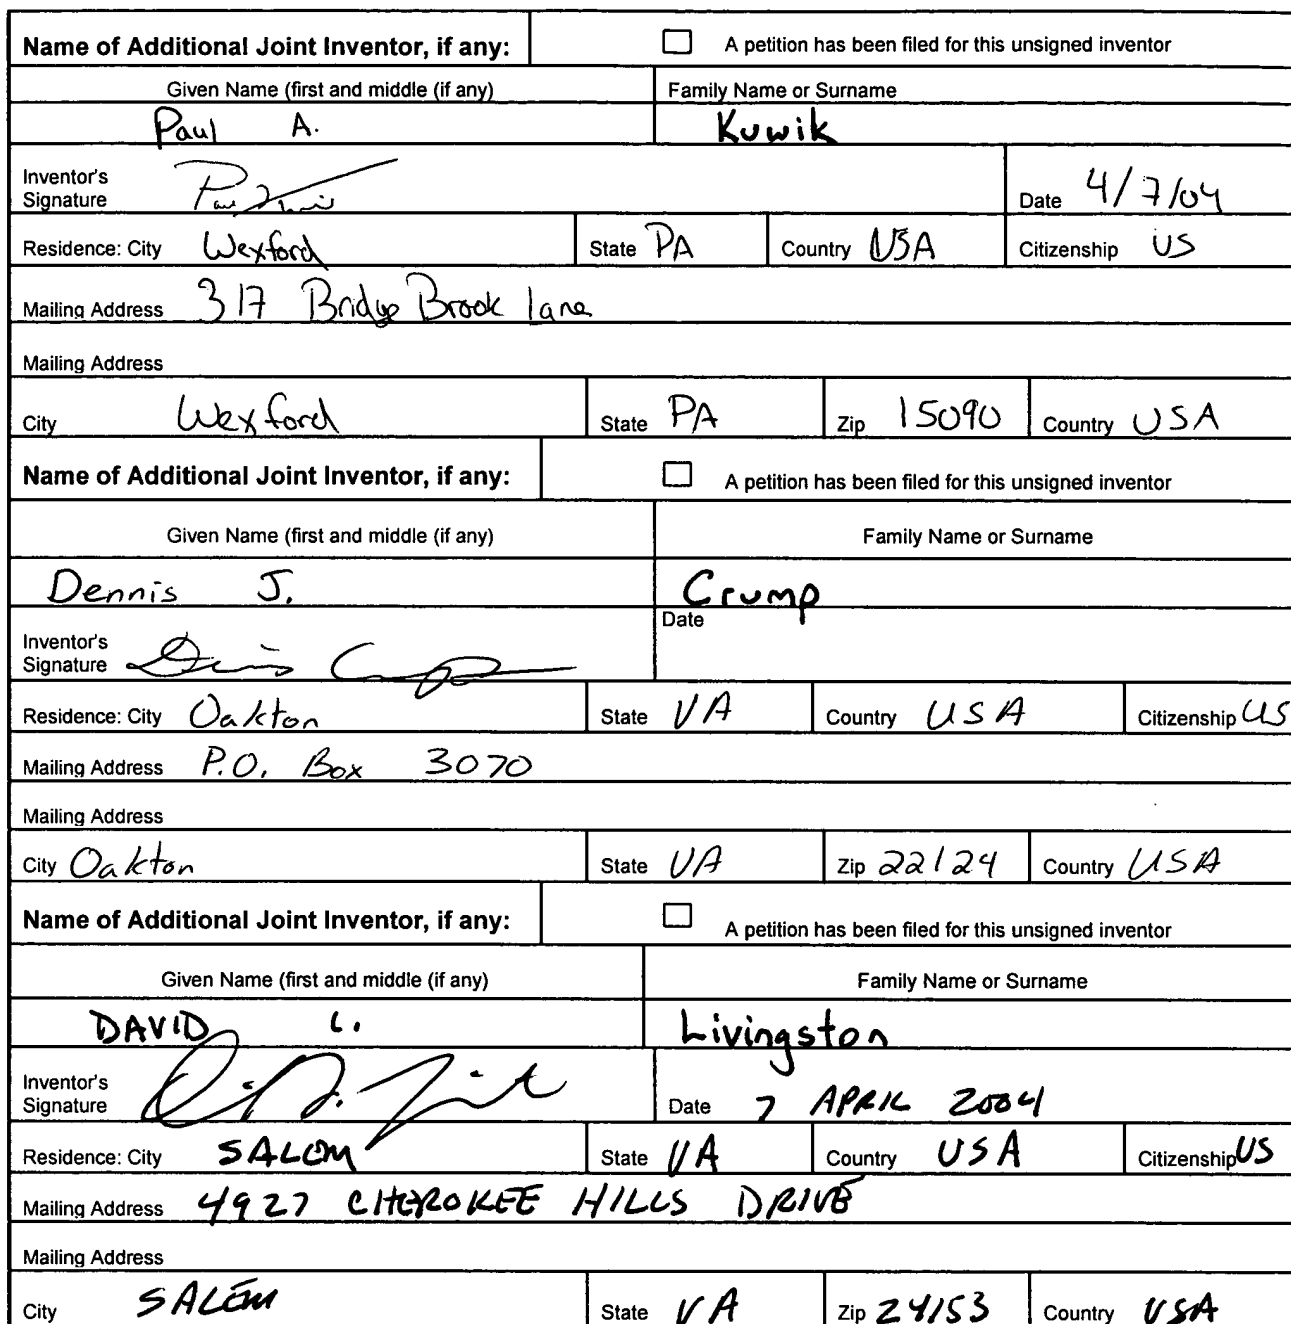 Name of Additional Joint Inventor, if any: A petition has been filed for this unsigned inventor
Given Name (first and middle (if any) Family Name or Surname
Paul A. Kuwik
Inventor's
Signature Date 4/7/04
Residence: City Wexford State PA Country USA Citizenship US
Mailing Address 317 Bridge Brook lane
Mailing Address
City Wexford State PA Zip 15090 Country USA
Name of Additional Joint Inventor, if any: A petition has been filed for this unsigned inventor
Given Name (first and middle (if any) Family Name or Surname
Dennis J. Crump
Date
Inventor's
Signature
Residence: City Oakton State VA Country USA Citizenship US
Mailing Address P.O. Box 3070
Mailing Address
City Oakton State VA Zip 22124 Country USA
Name of Additional Joint Inventor, if any: A petition has been filed for this unsigned inventor
Given Name (first and middle (if any) Family Name or Surname
DAVID L. Livingston
Inventor's
Signature Date 7 APRIL 2004
Residence: City SALEM State VA Country USA Citizenship US
Mailing Address 4927 CHEROKEE HILLS DRIVE
Mailing Address
City SALEM State VA Zip 24153 Country USA